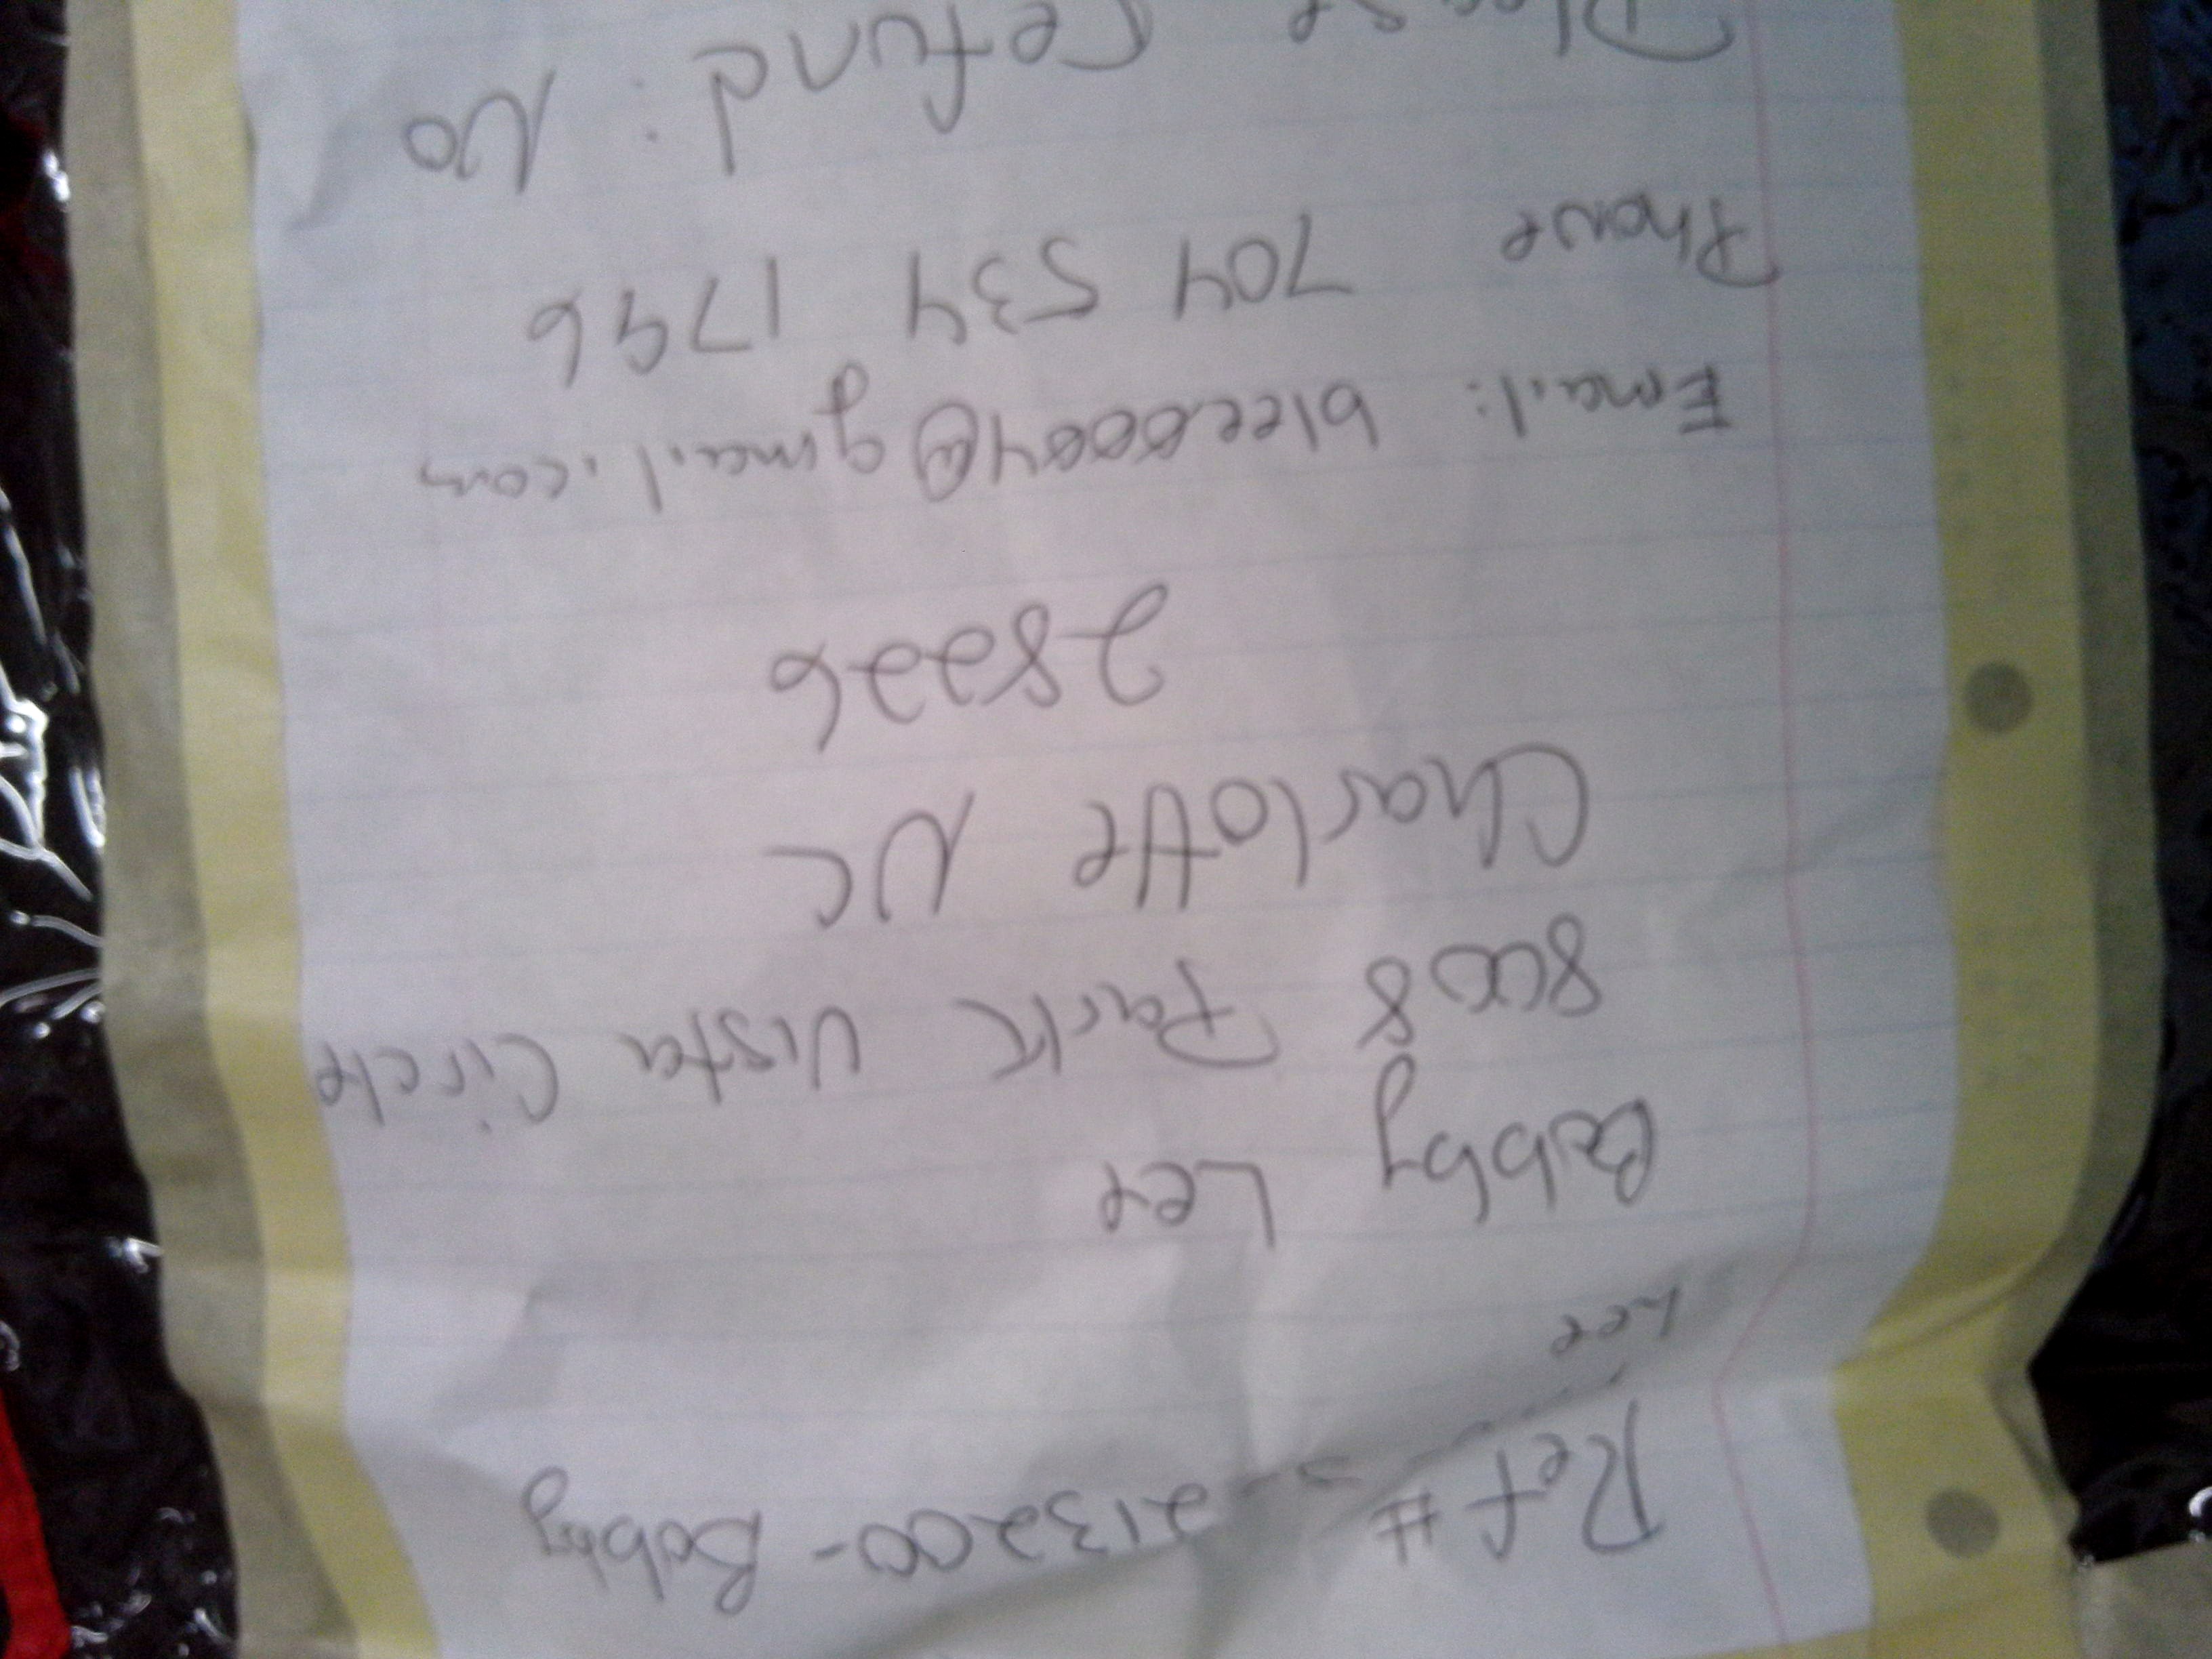 Ref # 213200 - Bobby
Lee
Bobby Lee
8008 Park Vista Circle
Charlotte NC
28226
Email: blee0004@gmail.com
Phone 704 534 1796
Please refund: NO